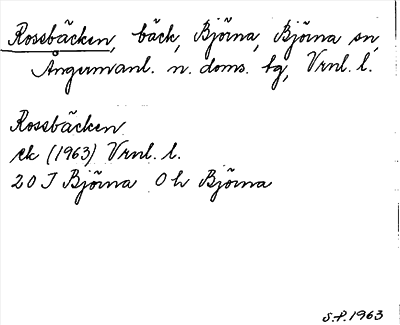 Rossbäcken, bäck, Björna, Björna sn,
Ångermanl. n. doms. tg, Vrnl. l.
Rossbäcken
ek (1963) Vrnl. l.
20 J Björna O h Björna
S.F. 1963